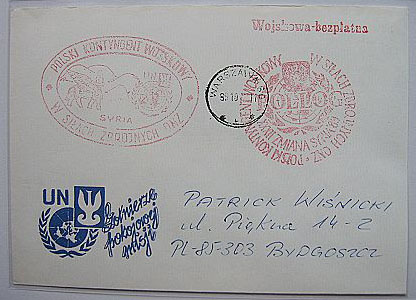 Wojskowa-bezpłatna
POLSKI KONTYNGENT WOJSKOWY
SYRIA
W SIŁACH ZBROJNYCH ONZ
WARSZAWA
POLSKI KONTYNGENT WOJSKOWY W SIŁACH ZBROJNYCH ONZ
ZMIANA
UN
Żołnierze
pokojowej
misji
PATRICK WIŚNICKI
ul. Piękna 14-2
PL-85-303 BYDGOSZCZ